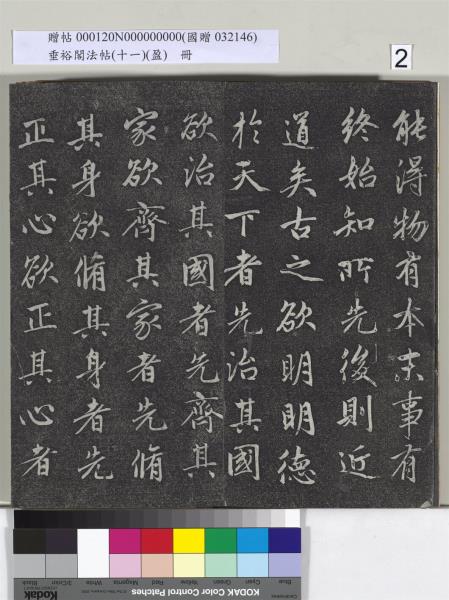 贈帖 000120N000000000(國贈 032146)
垂裕閣法帖(十一)(盈) 冊
2
能得物有本末事有
終始知所先後則近
道矣古之欲明明德
於天下者先治其國
欲治其國者先齊其
家欲齊其家者先脩
其身欲脩其身者先
正其心欲正其心者
Blue Cyan Green Yellow Red Magenta White 3/Color Black
Kodak
KODAK Color Control Patches